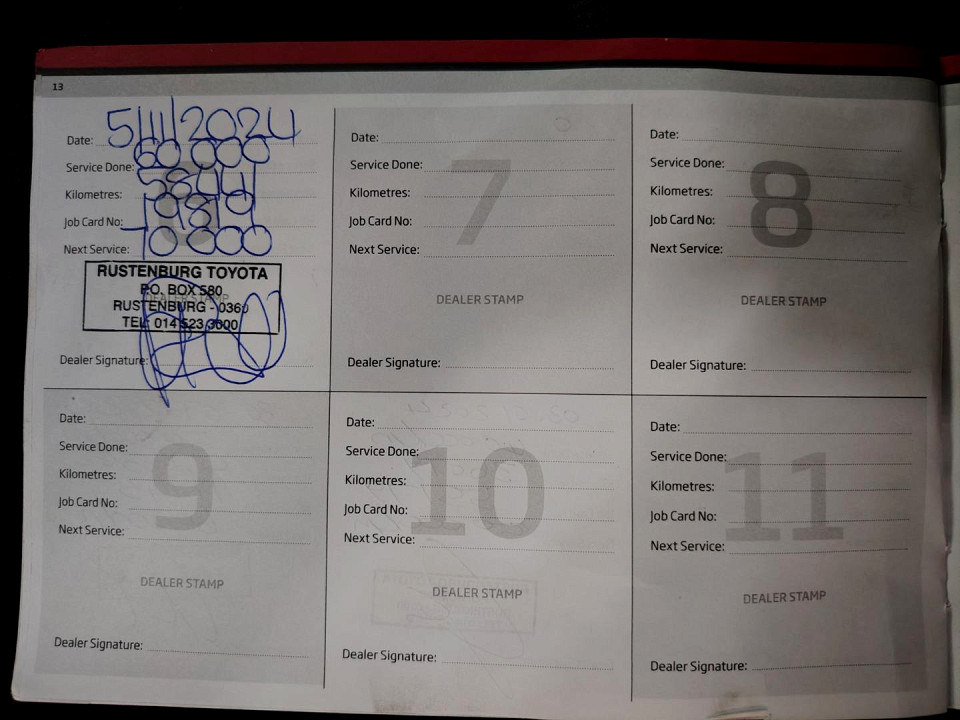 13
Date: 5/11/2024
Service Done: 60 000
Kilometres:
Job Card No:
Next Service: 70 000
RUSTENBURG TOYOTA
P.O. BOX 580
RUSTENBURG - 0360
TEL: 014 523 3000
Dealer Signature:
7
Date:
Service Done:
Kilometres:
Job Card No:
Next Service:
DEALER STAMP
Dealer Signature:
8
Date:
Service Done:
Kilometres:
Job Card No:
Next Service:
DEALER STAMP
Dealer Signature:
9
Date:
Service Done:
Kilometres:
Job Card No:
Next Service:
DEALER STAMP
Dealer Signature:
10
Date:
Service Done:
Kilometres:
Job Card No:
Next Service:
DEALER STAMP
Dealer Signature:
11
Date:
Service Done:
Kilometres:
Job Card No:
Next Service:
DEALER STAMP
Dealer Signature: